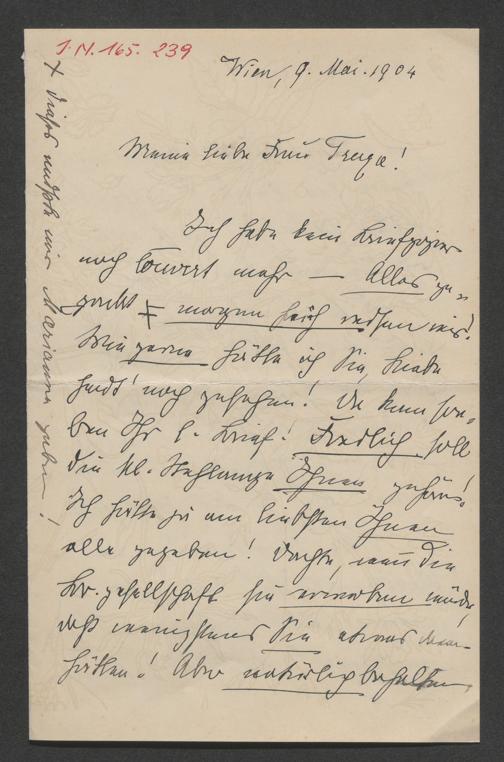 I.N. 165.239
Wien, 9. Mai. 1904
Meine liebe Frau
Ich habe kein Briefpapier
noch Couvert mehr — Alles ge-
packt ŧ morgen früh reisen wir!
Wie gerne hätte ich Sie, Liebe
heut' noch gesehen! Da kam so-
ben Ihr l. Brief! Freilich soll
die kl. Stehlampe Ihnen gehören!
Ich hätte ja am liebsten Ihnen
alle gegeben! Dachte, wenn die
gesellschaft sie erwerben würde,
daß wenigstens Sie etwas davon
hätten! Aber natürlich behalten
+ dieses mußte mir Marianne geben!